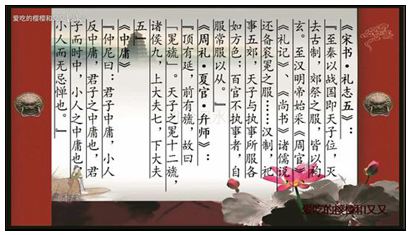 爱吃的樱樱和又又
《宋书·礼志五》：
『至秦以战国即天子位，灭
去古制，郊祭之服，皆以袀
玄。至汉明帝始采《周官》
《礼记》、《尚书》诸儒说，
还备衮冕之服……汉制，祀
事五郊，天子与执事所服各
如方色；百官不执事者，自
服常服以从。』
《周礼·夏官·弁师》：
『顶有延，前有旒，故曰
『冕旒』。天子之冕十二旒，
诸侯九，上大夫七，下大夫
五』
《中庸》
『仲尼曰：君子中庸，小人
反中庸，君子之中庸也，君
子而时中，小人之中庸也，
小人而无忌惮也。』
爱吃的樱樱和又又